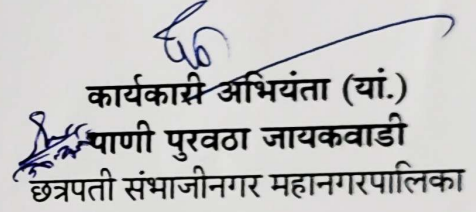 कार्यकारी अभियंता (यां.)
पाणी पुरवठा जायकवाडी
छत्रपती संभाजीनगर महानगरपालिका